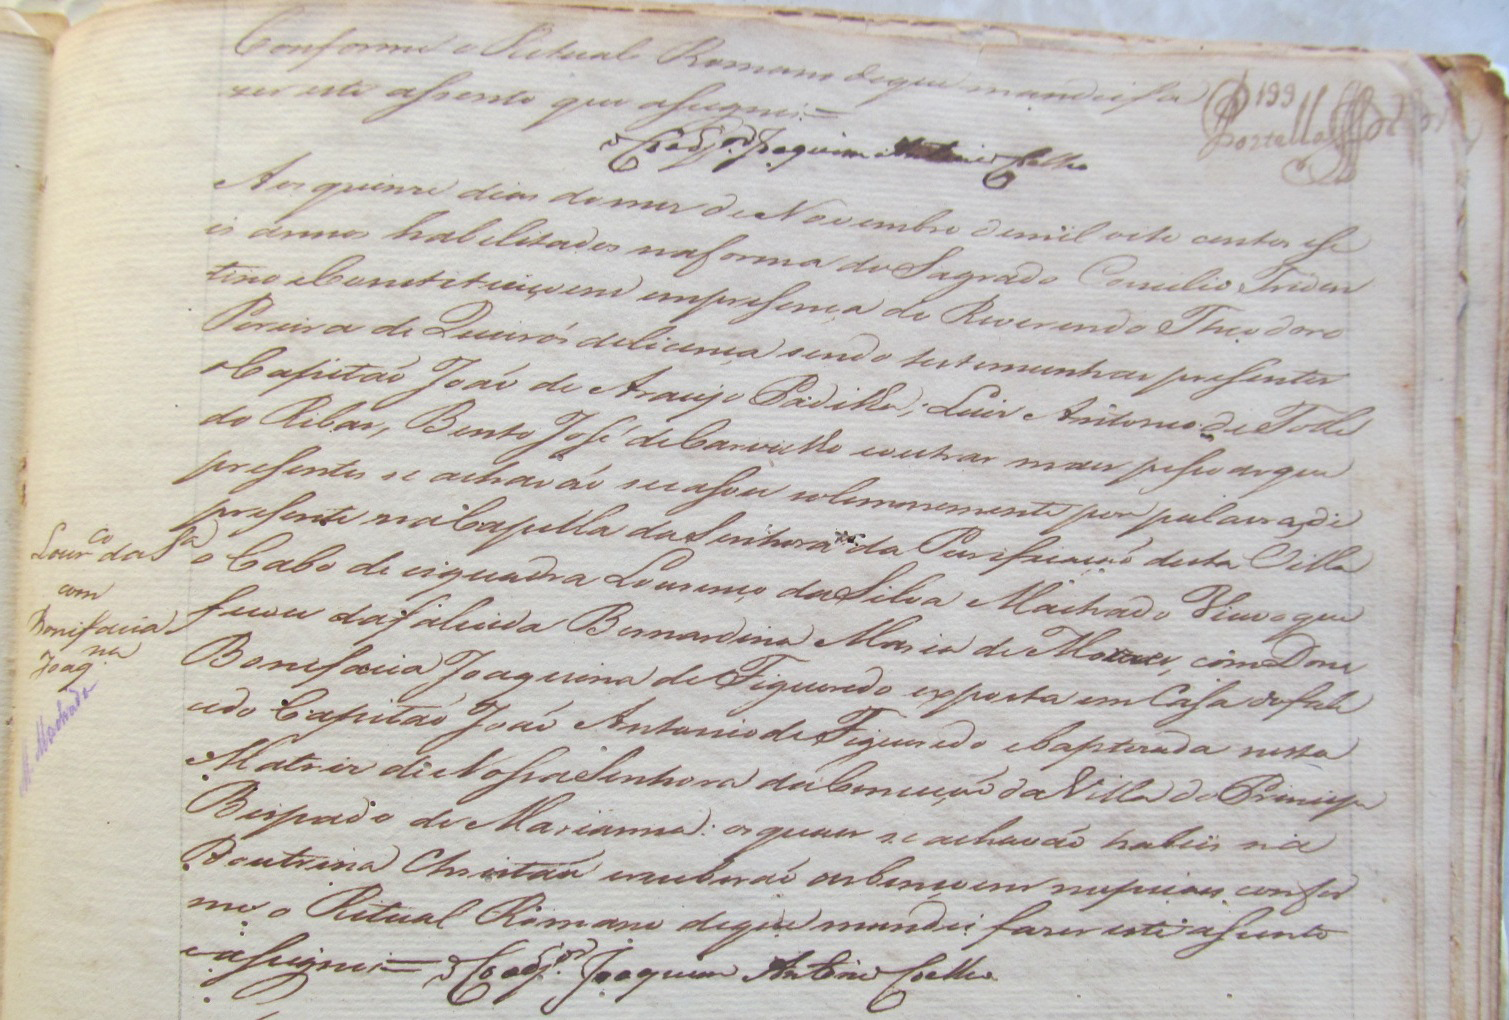 Conforme o Ritual Romano deque mandei fa
zer este assento que assignei =
o Coadj.or Joaquim Antonio Coelho
199
Portella
Aos quinze dias do mes de Novembro demil oito centos ese
is annos habilitados naforma do Sagrado Concilio Triden
tino eConstituiçoens empresença do Reverendo Theodoro
Pereira de Queirós delicença sendo testemunhas presentes
oCapitaõ Joaõ de Araujo Padilha, Luis Antonio de Tolle
do Ribas, Bento José deCarvalho eoutras mais pessoasque
presentes se achavaõ secasou solemnemente por palavrasde
presente naCapella daSenhora da Purificacaõ desta Villa
o Cabo de esquadra Lourenço daSilva Machado Viuvoque
ficou dafalicida Bernardina Maria de Moraes, com Dona
Bonefacia Joaquina de Figueredo exposta em Casa dofale
cido Capitaõ Joaõ Antonio de Figueredo ebaptizada nesta
Matriz de Nossa Senhora daConceiçaõ da Villa do Princepe
Bispado de Marianna: osquaes se achavaõ habeis na
Doutrina Christaã ereceberaõ asbençoens nupciaes confor
me o Ritual Romano deque mandei fazer este assento
eassignei = o Coadj.or Joaquim Antonio Coelho
Lour.co da Sa
com
Bonifacia
Joaq.na
M. Machado